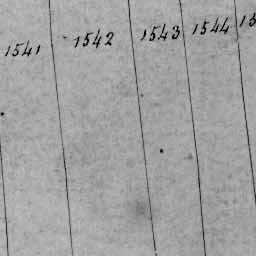 1541 1542 1543 1544